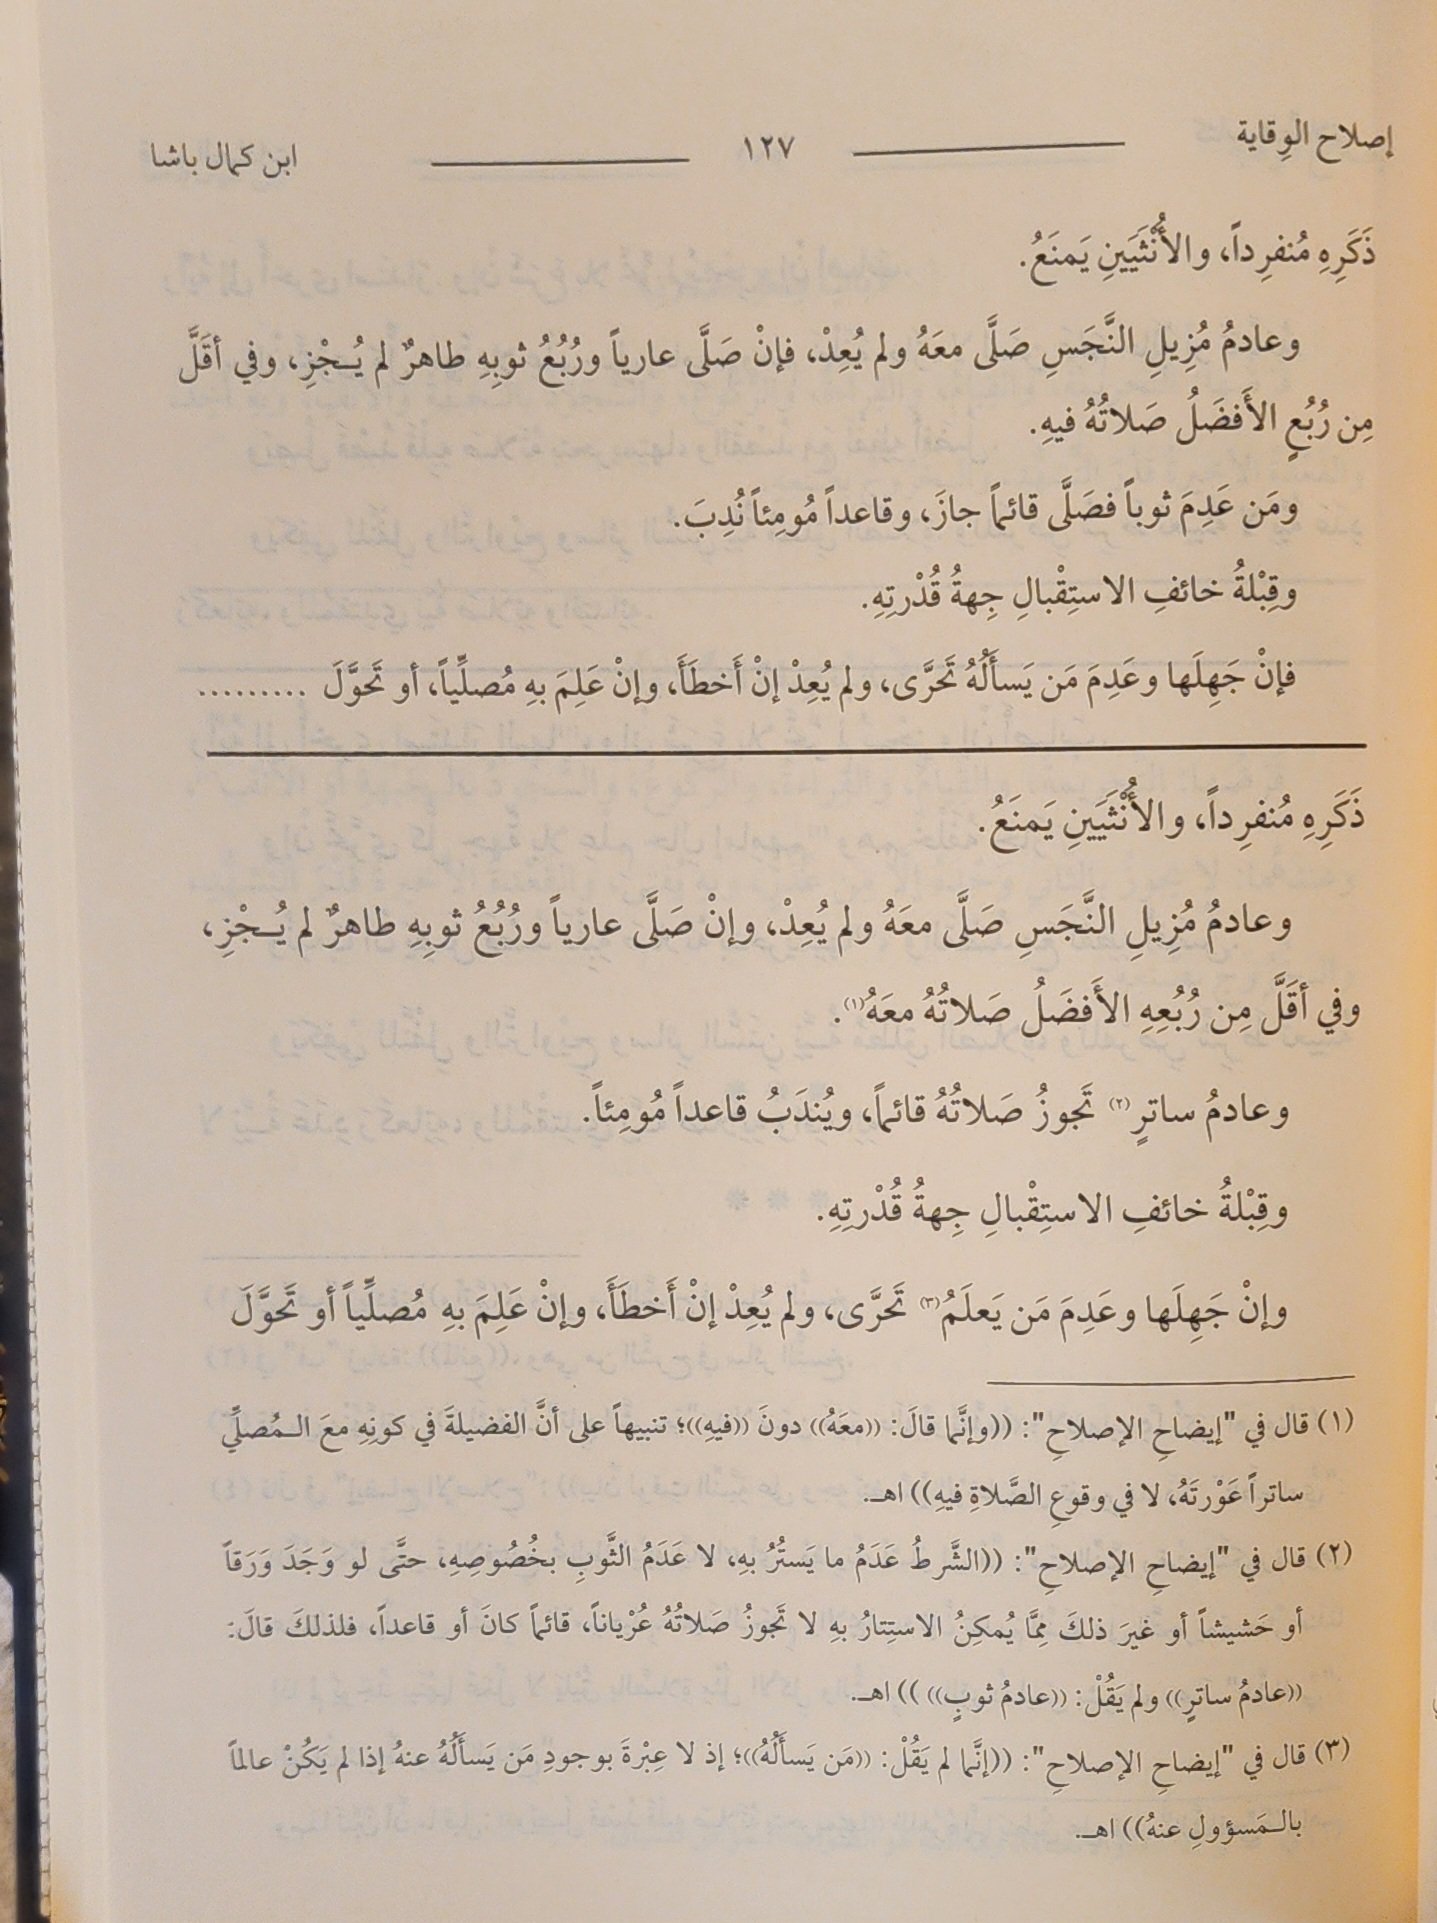 إصلاح الوِقاية ١٢٧ ابن كمال باشا
ذَكَرِهِ مُنفرِداً، والأُنْثَيَينِ يَمنَعُ.
وعادمُ مُزِيلِ النَّجَسِ صَلَّى معَهُ ولم يُعِدْ، فإنْ صَلَّى عارياً ورُبُعُ ثوبِهِ طاهرٌ لم يُـجْزِ، وفي أقَلَّ
مِن رُبُعٍ الأَفضَلُ صَلاتُهُ فيهِ.
ومَن عَدِمَ ثوباً فصَلَّى قائماً جازَ، وقاعداً مُومِئاً نُدِبَ.
وقِبْلةُ خائفِ الاستِقْبالِ جِهةُ قُدْرتِهِ.
فإنْ جَهِلَها وعَدِمَ مَن يَسأَلُهُ تَحرَّى، ولم يُعِدْ إنْ أَخطَأَ، وإنْ عَلِمَ بهِ مُصلِّياً، أو تَحوَّلَ .........
ذَكَرِهِ مُنفرِداً، والأُنْثَيَينِ يَمنَعُ.
وعادمُ مُزِيلِ النَّجَسِ صَلَّى معَهُ ولم يُعِدْ، وإنْ صَلَّى عارياً ورُبُعُ ثوبِهِ طاهرٌ لم يُـجْزِ،
وفي أقَلَّ مِن رُبُعِهِ الأَفضَلُ صَلاتُهُ معَهُ(١).
وعادمُ ساترٍ(٢) تَجوزُ صَلاتُهُ قائماً، ويُندَبُ قاعداً مُومِئاً.
وقِبْلةُ خائفِ الاستِقْبالِ جِهةُ قُدْرتِهِ.
وإنْ جَهِلَها وعَدِمَ مَن يَعلَمُ(٣) تَحرَّى، ولم يُعِدْ إنْ أَخطَأَ، وإنْ عَلِمَ بهِ مُصلِّياً أو تَحوَّلَ
(١) قال في "إيضاحِ الإصلاحِ": ((وإنَّما قالَ: ((معَهُ)) دونَ ((فيهِ))؛ تنبيهاً على أنَّ الفضيلةَ في كونِهِ معَ الـمُصلِّي
ساتراً عَوْرتَهُ، لا في وقوعِ الصَّلاةِ فيهِ)) اهـ.
(٢) قال في "إيضاحِ الإصلاحِ": ((الشَّرطُ عَدَمُ ما يَستُرُ بهِ، لا عَدَمُ الثَّوبِ بخُصُوصِهِ، حتَّى لو وَجَدَ وَرَقاً
أو حَشيشاً أو غيرَ ذلكَ مِمَّا يُمكِنُ الاستِتارُ بهِ لا تَجوزُ صَلاتُهُ عُرْياناً، قائماً كانَ أو قاعداً، فلذلكَ قالَ:
((عادمُ ساترٍ)) ولم يَقُلْ: ((عادمُ ثوبٍ)) )) اهـ.
(٣) قال في "إيضاحِ الإصلاحِ": ((إنَّما لم يَقُلْ: ((مَن يَسأَلُهُ))؛ إذ لا عِبْرةَ بوجودِ مَن يَسأَلُهُ عنهُ إذا لم يَكُنْ عالماً
بالـمَسؤولِ عنهُ)) اهـ.